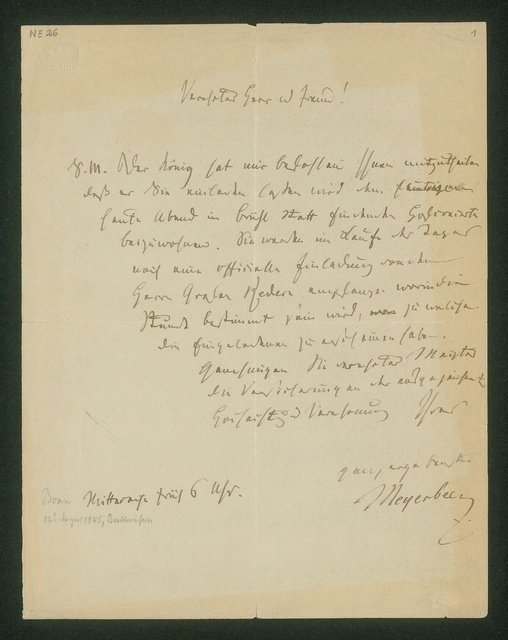 NE 26
1
Verehrter Herr u Freund!
S. M. Der König hat mir befohlen Ihnen mitzutheilen
daß er Sie einladen lassen wird dem
heute Abend in Brühl Statt findenden Hofconcerte
beizuwohnen. Sie werden im Laufe des Tages
noch eine officielle Einladung von dem
Herrn Grafen Redern empfangen worin die
Stunde bestimmt sein wird, zu welcher
die Eingeladenen zu erscheinen haben.
Genehmigen Sie verehrter Meister
die Versicherung der ausgezeichnetsten
Hochachtung u Verehrung Ihres
ganz ergebensten
Meyerbeer
Bonn Mittwoch früh 6 Uhr.
12. August 1845,